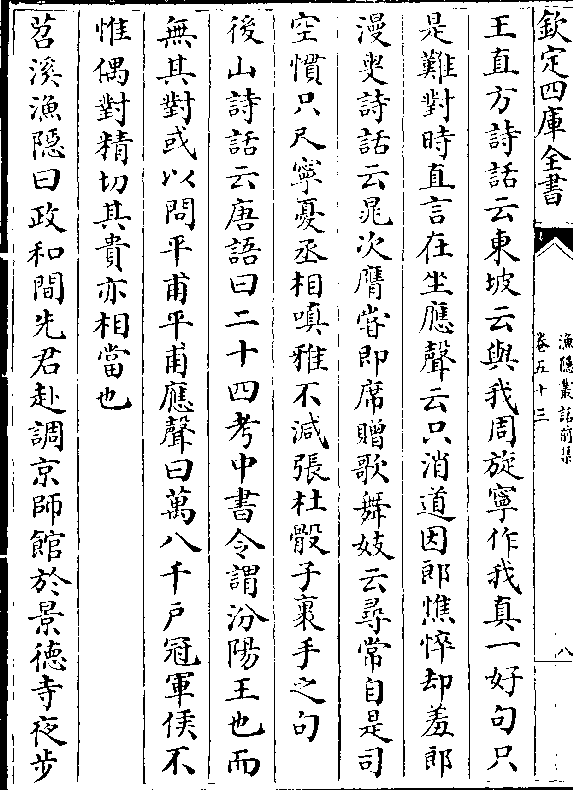 欽定四庫全書
漁隱叢話前集
卷五十三
八
王直方詩話云東坡云與我周旋寧作我真一好句只
是難對時直言在坐應聲云只消道因郎憔悴却羞郎
漫叟詩話云晁次膺嘗即席贈歌舞妓云尋常自是司
空慣只尺寧憂丞相嗔雅不減張杜骰子裹手之句
後山詩話云唐語曰二十四考中書令謂汾陽王也而
無其對或以問平甫平甫應聲曰萬八千戶冠軍侯不
惟偶對精切其貴亦相當也
苕溪漁隱曰政和間先君赴調京師館於景德寺夜步